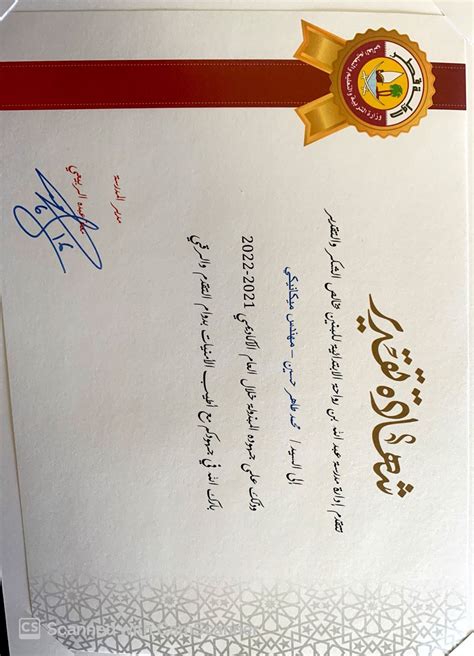 دولة قطر
وزارة التربية والتعليم والتعليم العالي
شهادة تقدير
تتقدم إدارة مدرسة عبد الله بن رواحة الابتدائية للبنين بخالص الشكر والتقدير
إلى السيد / محمد طاهر حسين - مهندس ميكانيكي
وذلك على جهوده المبذولة خلال العام الأكاديمي 2021-2022
بارك الله في جهودكم مع أطيب الأمنيات بدوام التقدم والرقي
مدير المدرسة
الربيعي
CS Scanned